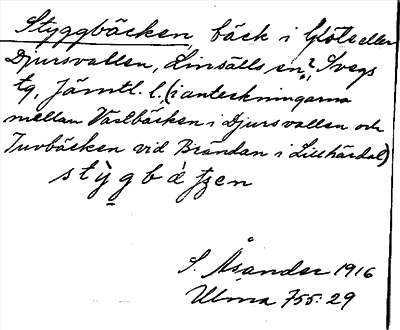 Styggbäcken, bäck i Glöte eller
Djursvallen, Linsälls sn? Svegs
tg, Jämtl. l. (i anteckningarna
mellan Västbäcken i Djursvallen och
Tuvbäcken vid Brändan i Lillhärdal)
stỳgbä̀tzen
S. Åsander 1916
Ulma 755:29